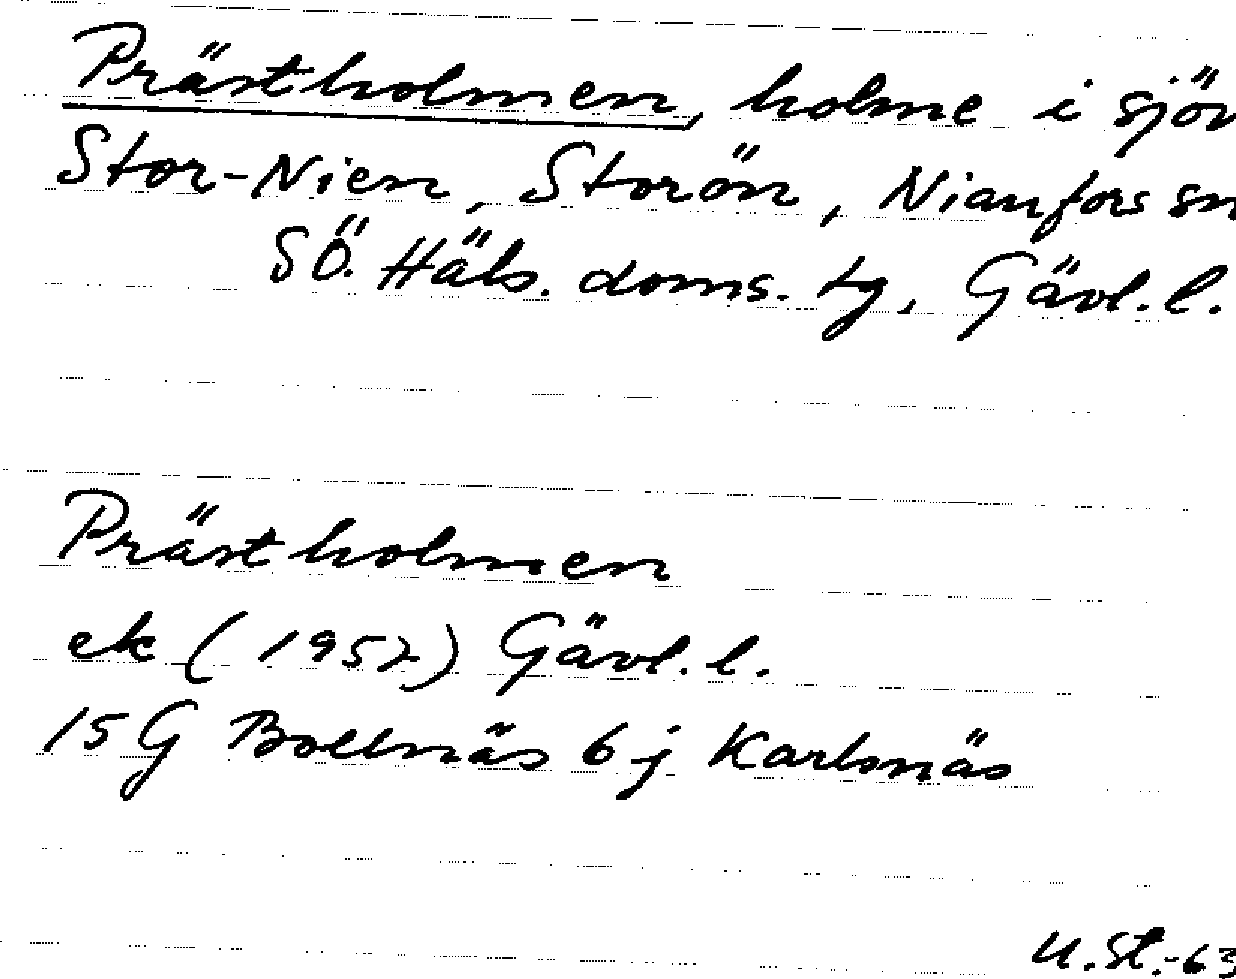 Prästholmen, holme i sjön
Stor-Nien, Storön, Nianfors sn
SÖ. Häls. doms. tg, Gävl. l.
Prästholmen
ek (1952) Gävl. l.
15 G Bollnäs 6 j Karlsnäs
U. St. -63